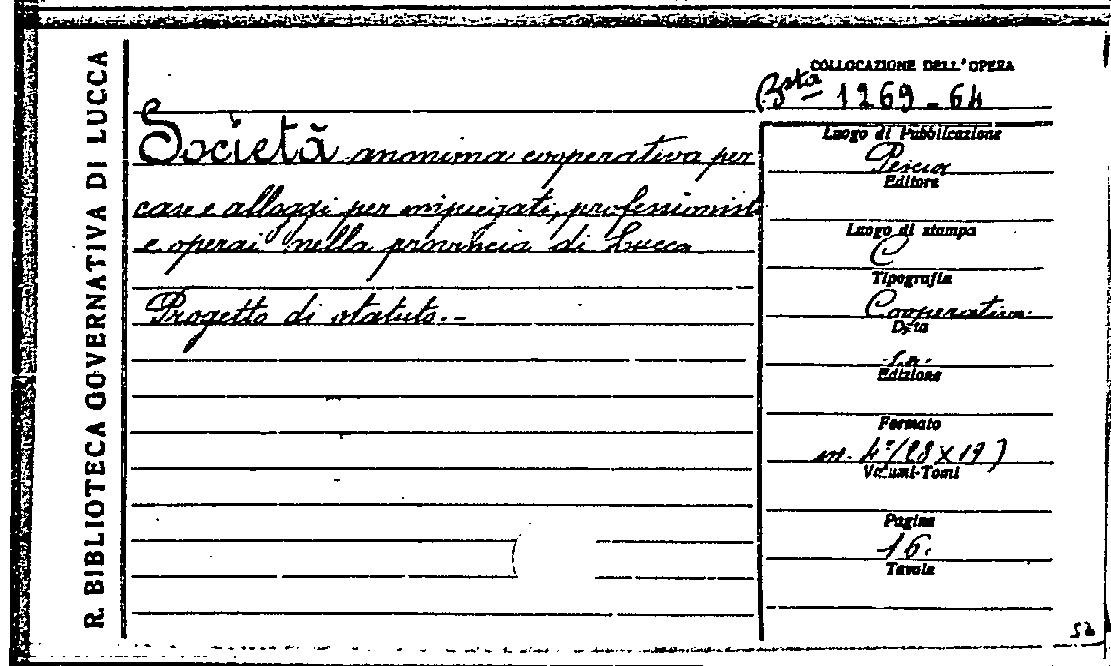 R. BIBLIOTECA GOVERNATIVA DI LUCCA
COLLOCAZIONE DELL'OPERA
Bsta 1269-64
Società anonima cooperativa per
case e alloggi per impiegati, professionisti
e operai nella provincia di Lucca
Progetto di statuto.-
Luogo di Pubblicazione
Pescia
Editore
Luogo di stampa
Tipografia
Cooperativa.
Data
s.a.
Edizione
Formato
in-4°(28x19)
Volumi-Tomi
Pagine
16.
Tavole